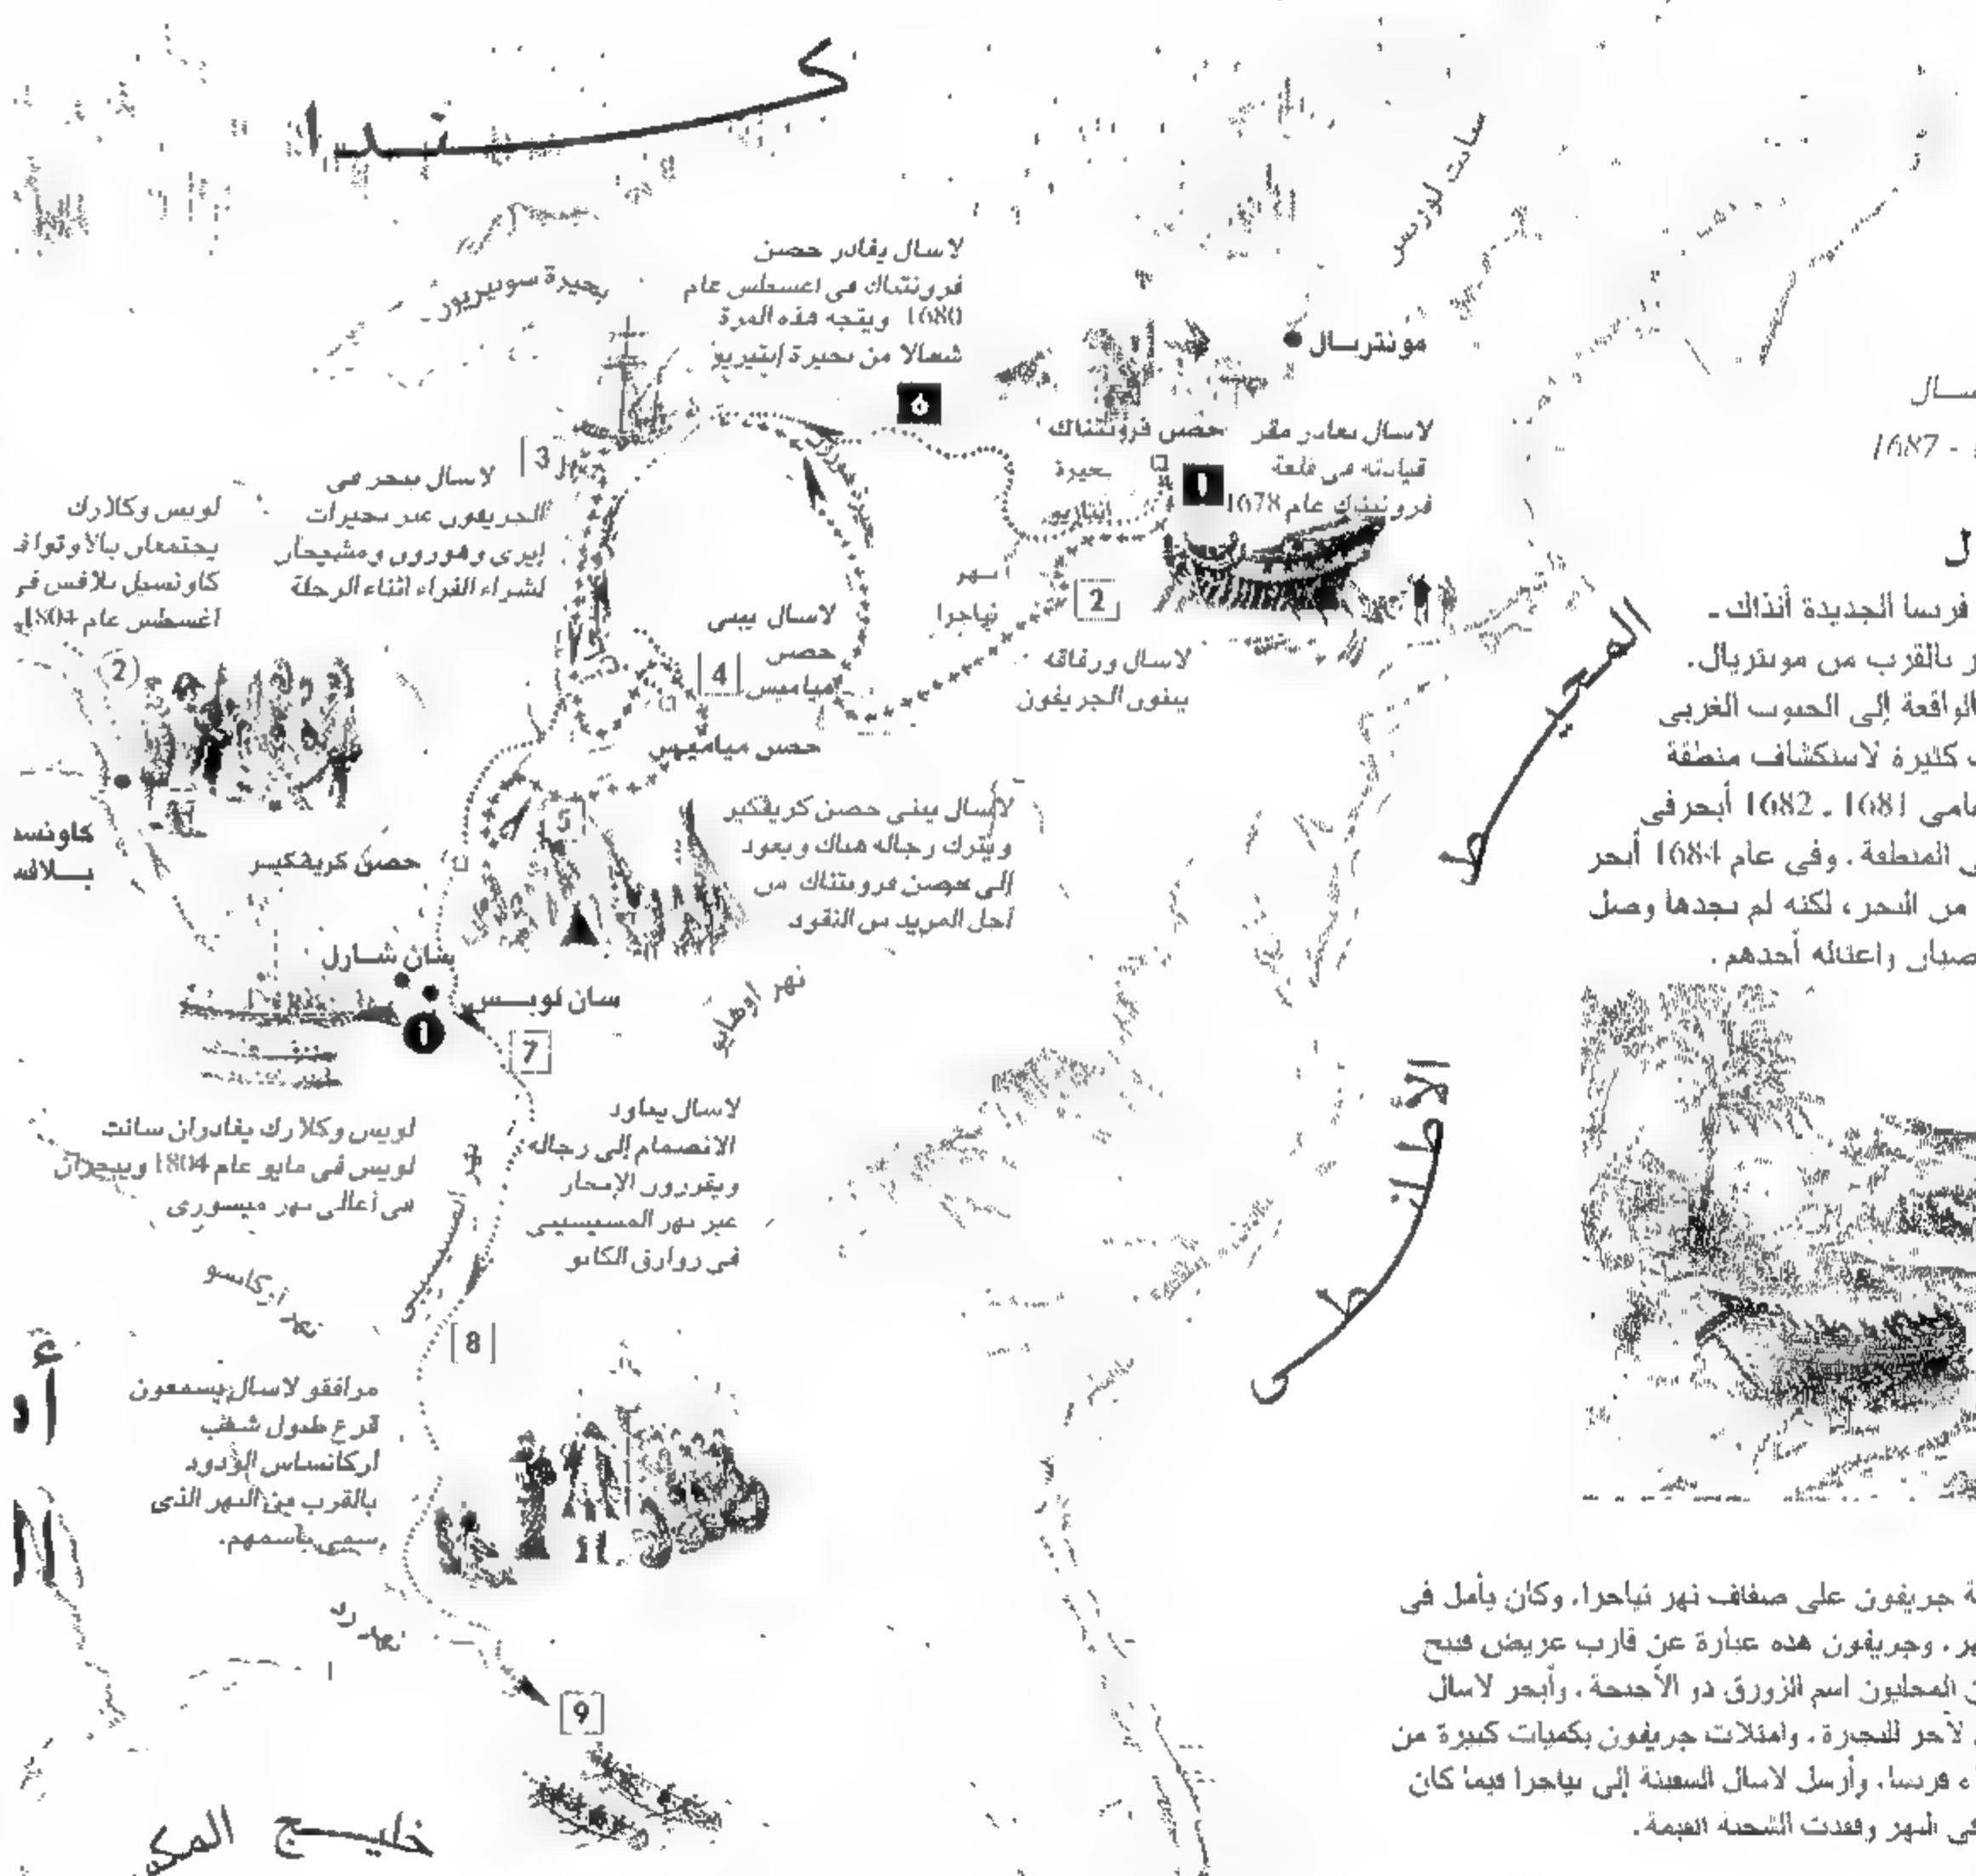 كـــنـدا
سانت لورنس
بحيرة سوبيريور
لاسال يغادر حصن
فرونتناك فى اغسطس عام
1680 ويتجه هذه المرة
شمالا من بحيرة إنتيريو
6
مونتريــال
لاسال يغادر مقر
قيادته فى قلعة
فرونتناك عام 1678
1
حصن فرونتناك
بحيرة
3
لاسال يبحر فى
الجريفون عبر بحيرات
إيرى وهورون ومشيجان
لشراء الفراء اثناء الرحلة
لويس وكلارك
يجتمعان بالاوتو
كاونسيل بلافس فى
اغسطس عام 1804
2
كاونسـ
بــلافـ
نهر
نياجرا
2
لاسال ورفاقه
يبنون الجريفون
لاسال يبنى
حصن
مياميس
4
حصن مياميس
5
لاسال يبنى حصن كريفكير
ويترك رجاله هناك ويعود
إلى حصن فرونتناك من
أجل المزيد من النقود
حصن كريفكيـر
سان شــارل
سان لويــس
1
7
نهر اوهايو
لويس وكلارك يغادران سانت
لويس فى مايو عام 1804 ويبحران
فى أعالى نهر ميسورى
لاسال يعاود
الانضمام إلى رجاله
ويقررون الإبحار
عبر نهر المسيسيبى
فى زوارق الكانو
نهر المسيسيبى
8
مرافقو لاسال يسمعون
قرع طبول شعب
أركانساس الودود
بالقرب من النهر الذى
سمى باسمهم.
9
خليــج المكـ
المحيـط
الأطلنطى
ــال
1687 -
ل
فرنسا الجديدة أنذاك ـ
ر بالقرب من مونتريال.
الواقعة إلى الجنوب الغربى
ت كثيرة لاستكشاف منطقة
عامى 1681 ـ 1682 أبحر فى
ى المنطقة. وفى عام 1684 أبحر
من البحر، لكنه لم يجدها وصل
صيان واغتاله أحدهم.
ة جريفون على ضفاف نهر نياجرا. وكان يأمل فى
هر. وجريفون هذه عبارة عن قارب عريض قبيح
ن المحليون اسم الزورق ذو الأجنحة. وأبحر لاسال
لآخر للتجارة. وامتلات جريفون بكميات كبيرة من
اء فرنسا. وأرسل لاسال السفينة إلى نياجرا فيما كان
فى النهر وفقدت الشحنة القيمة.